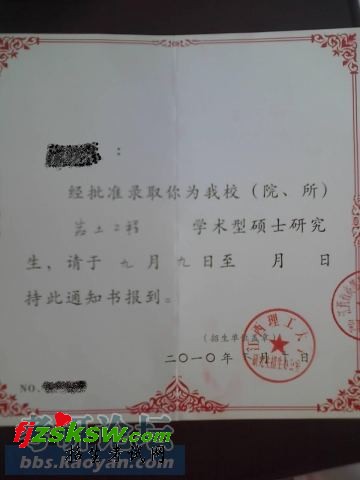 ：
经批准录取你为我校（院、所）
岩土工程 学术型硕士研究
生，请于九月九日至 月 日
持此通知书报到。
（招生单位盖章）
江西理工大学
二〇一〇年 月 日
NO.
考研论坛
fjzsksw.com
bbs.kaoyan.com